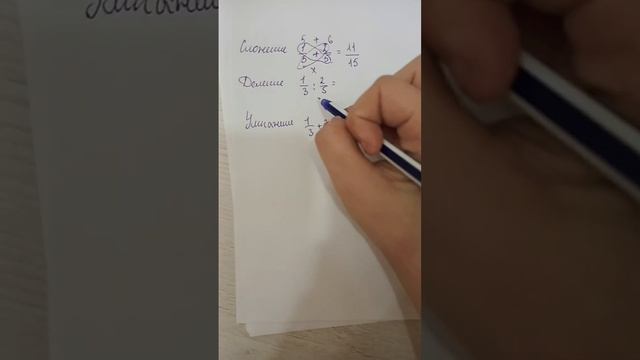 5 + 6
Сложение 1/3 + 2/5 = 11/15
x
Деление 1/3 : 2/5 =
Умножение 1/3